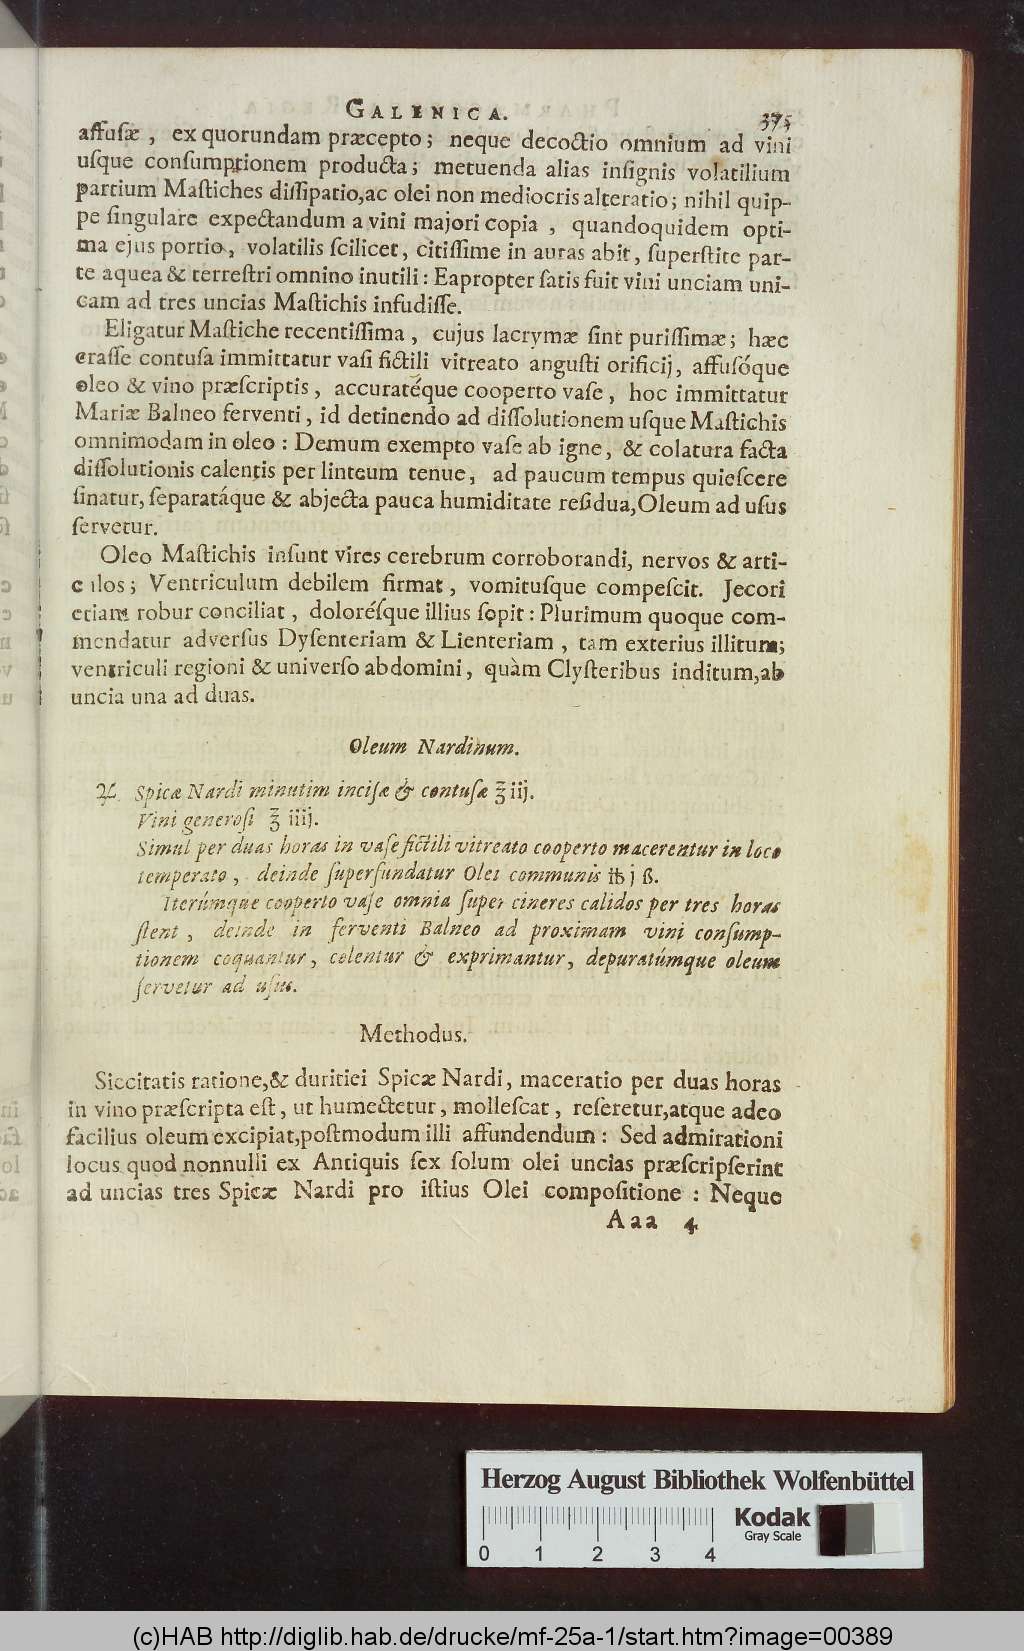 GALENICA. 375
affuſæ, ex quorundam præcepto; neque decoctio omnium ad vini
uſque conſumptionem producta; metuenda alias inſignis volatilium
partium Maſtiches diſſipatio, ac olei non mediocris alteratio; nihil quip-
pe ſingulare expectandum a vini majori copia, quandoquidem opti-
ma ejus portio, volatilis ſcilicet, citiſſime in auras abit, ſuperſtite par-
te aquea & terreſtri omnino inutili: Eapropter ſatis fuit vini unciam uni-
cam ad tres uncias Maſtichis infudiſſe.
Eligatur Maſtiche recentiſſima, cujus lacrymæ ſint puriſſimæ; hæc
craſſe contuſa immittatur vaſi fictili vitreato anguſti orificij, affuſóque
oleo & vino præſcriptis, accuratéque cooperto vaſe, hoc immittatur
Mariæ Balneo ferventi, id detinendo ad diſſolutionem uſque Maſtichis
omnimodam in oleo: Demum exempto vaſe ab igne, & colatura facta
diſſolutionis calentis per linteum tenue, ad paucum tempus quieſcere
ſinatur, ſeparatáque & abjecta pauca humiditate reſidua, Oleum ad uſus
ſervetur.
Oleo Maſtichis inſunt vires cerebrum corroborandi, nervos & arti-
culos; Ventriculum debilem firmat, vomituſque compeſcit. Jecori
etiam robur conciliat, doloréſque illius ſopit: Plurimum quoque com-
mendatur adverſus Dyſenteriam & Lienteriam, tam exterius illitum;
ventriculi regioni & univerſo abdomini, quàm Clyſteribus inditum, ab
uncia una ad duas.
Oleum Nardinum.
♃. Spicæ Nardi minutim inciſæ & contuſæ ℥ iij.
Vini generoſi ℥ iiij.
Simul per duas horas in vaſe fictili vitreato cooperto macerentur in loco
temperato, deinde ſuperfundatur Olei communis ℔ j ß.
Iterúmque cooperto vaſe omnia ſuper cineres calidos per tres horas
ſtent, deinde in ferventi Balneo ad proximam vini conſump-
tionem coquantur, colentur & exprimantur, depuratúmque oleum
ſervetur ad uſus.
Methodus.
Siccitatis ratione, & duritiei Spicæ Nardi, maceratio per duas horas
in vino præſcripta eſt, ut humectetur, molleſcat, reſeretur, atque adeo
facilius oleum excipiat, poſtmodum illi affundendum: Sed admirationi
locus quod nonnulli ex Antiquis ſex ſolum olei uncias præſcripſerint
ad uncias tres Spicæ Nardi pro iſtius Olei compoſitione: Neque
Aaa 4
Herzog August Bibliothek Wolfenbüttel
Kodak
Gray Scale
0 1 2 3 4
(c)HAB http://diglib.hab.de/drucke/mf-25a-1/start.htm?image=00389